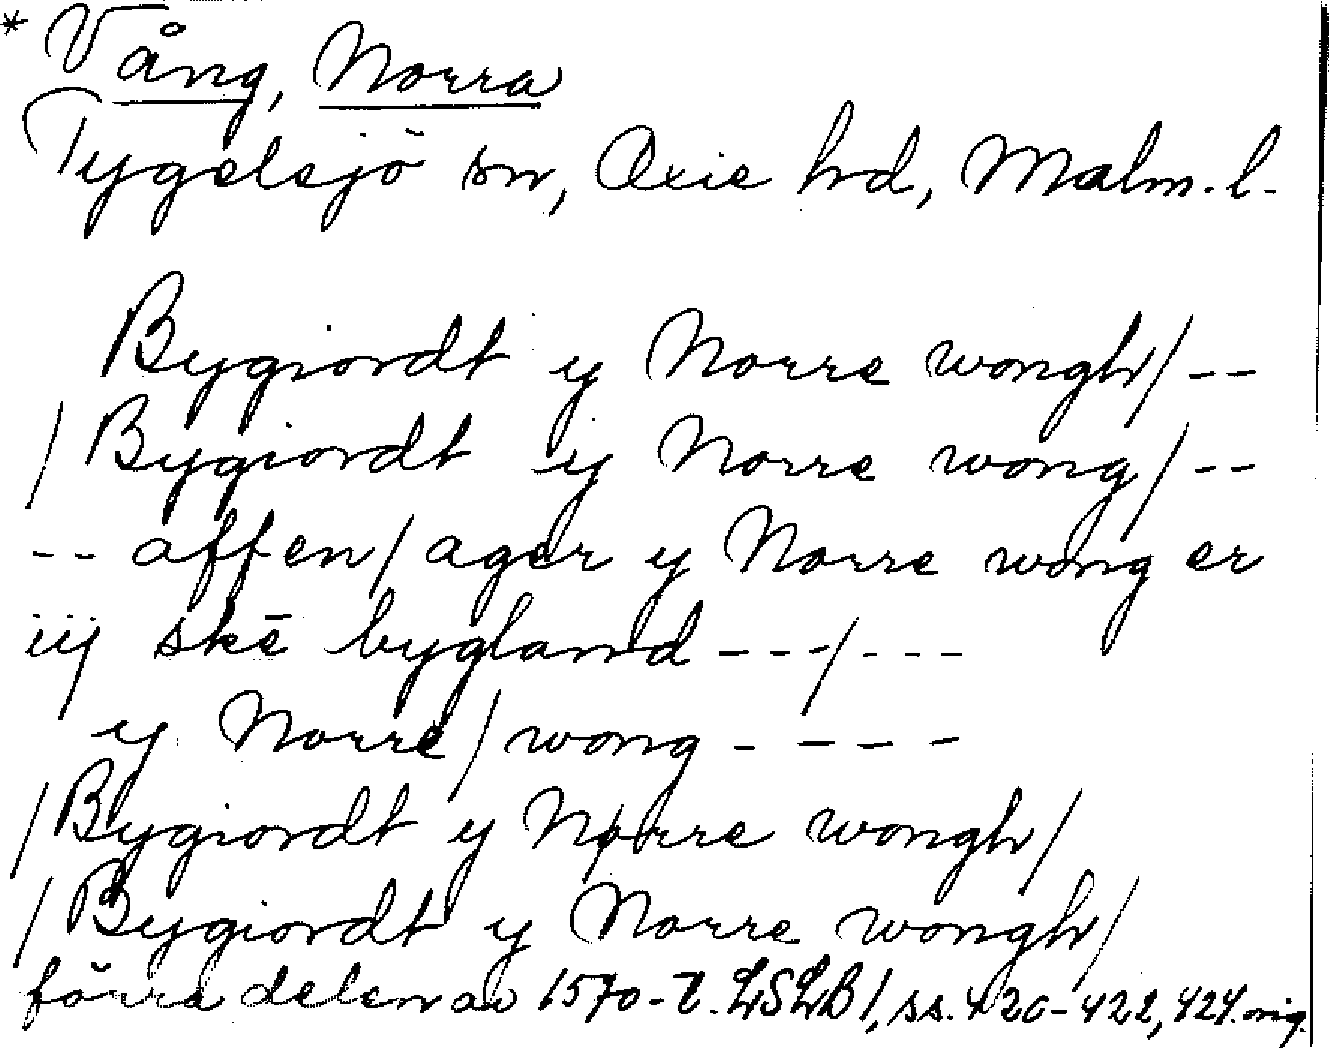 * Vång, Norra
Tygelsjö sn, Oxie hrd, Malm. l.
Bygiordt y Norre wongh/--
/Bygiordt ÿ Norre wong/--
-- affen/ager y Norre wong er
iij skē bygland ---/---
y Norre/wong ----
/Bygiordt y Nørre wongh/
/Bygiordt y Norre wongh/
förra delen av 1570-t. LSLB 1, ss. 420-422, 424. orig.